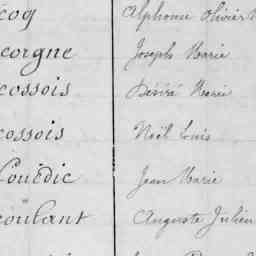 coq Alphonse Olivier
corgne Joseph Marie
cossois Désiré Marie
cossois Noël Louis
Couëdic Jean Marie
coulant Auguste Julien